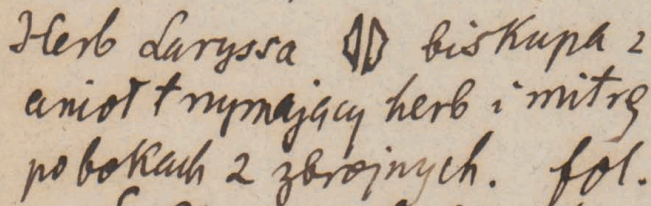 Herb Laryssa biskupa 2
anioł trzymający herb i mitrę
po bokach 2 zbrojnych. fol.